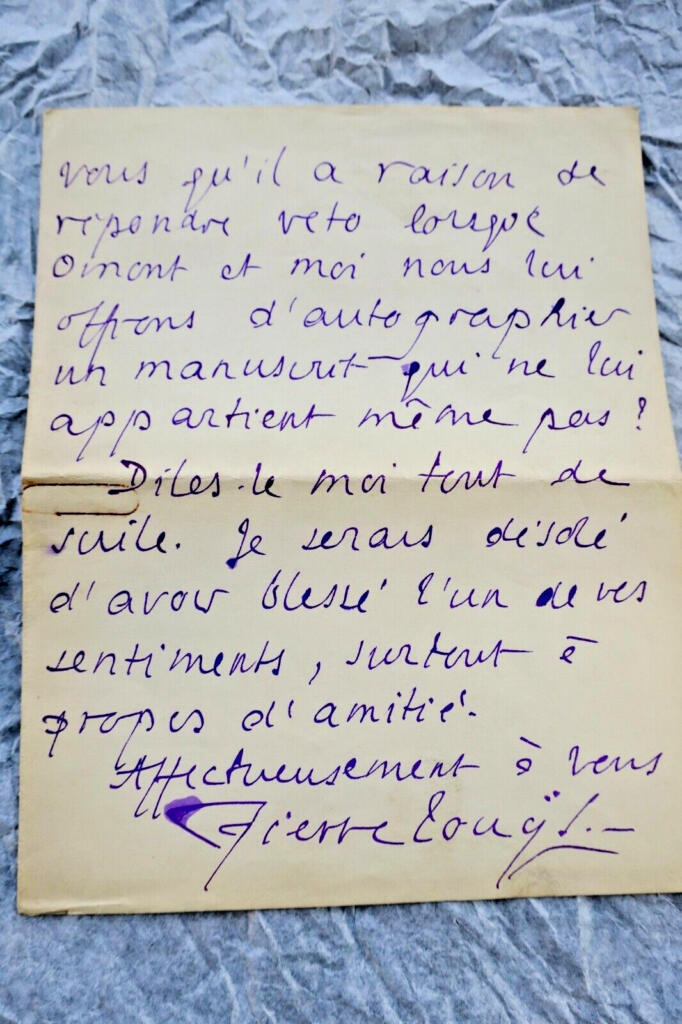 vous qu'il a raison de
répondre veto lorsque
Omont et moi nous lui
offrons d'autographier
un manuscrit qui ne lui
appartient même pas?
Dites-le moi tout de
suite. Je serais désolé
d'avoir blessé l'un de vos
sentiments, surtout à
propos d'amitié.
Affectueusement à vous
Pierre Louÿs.